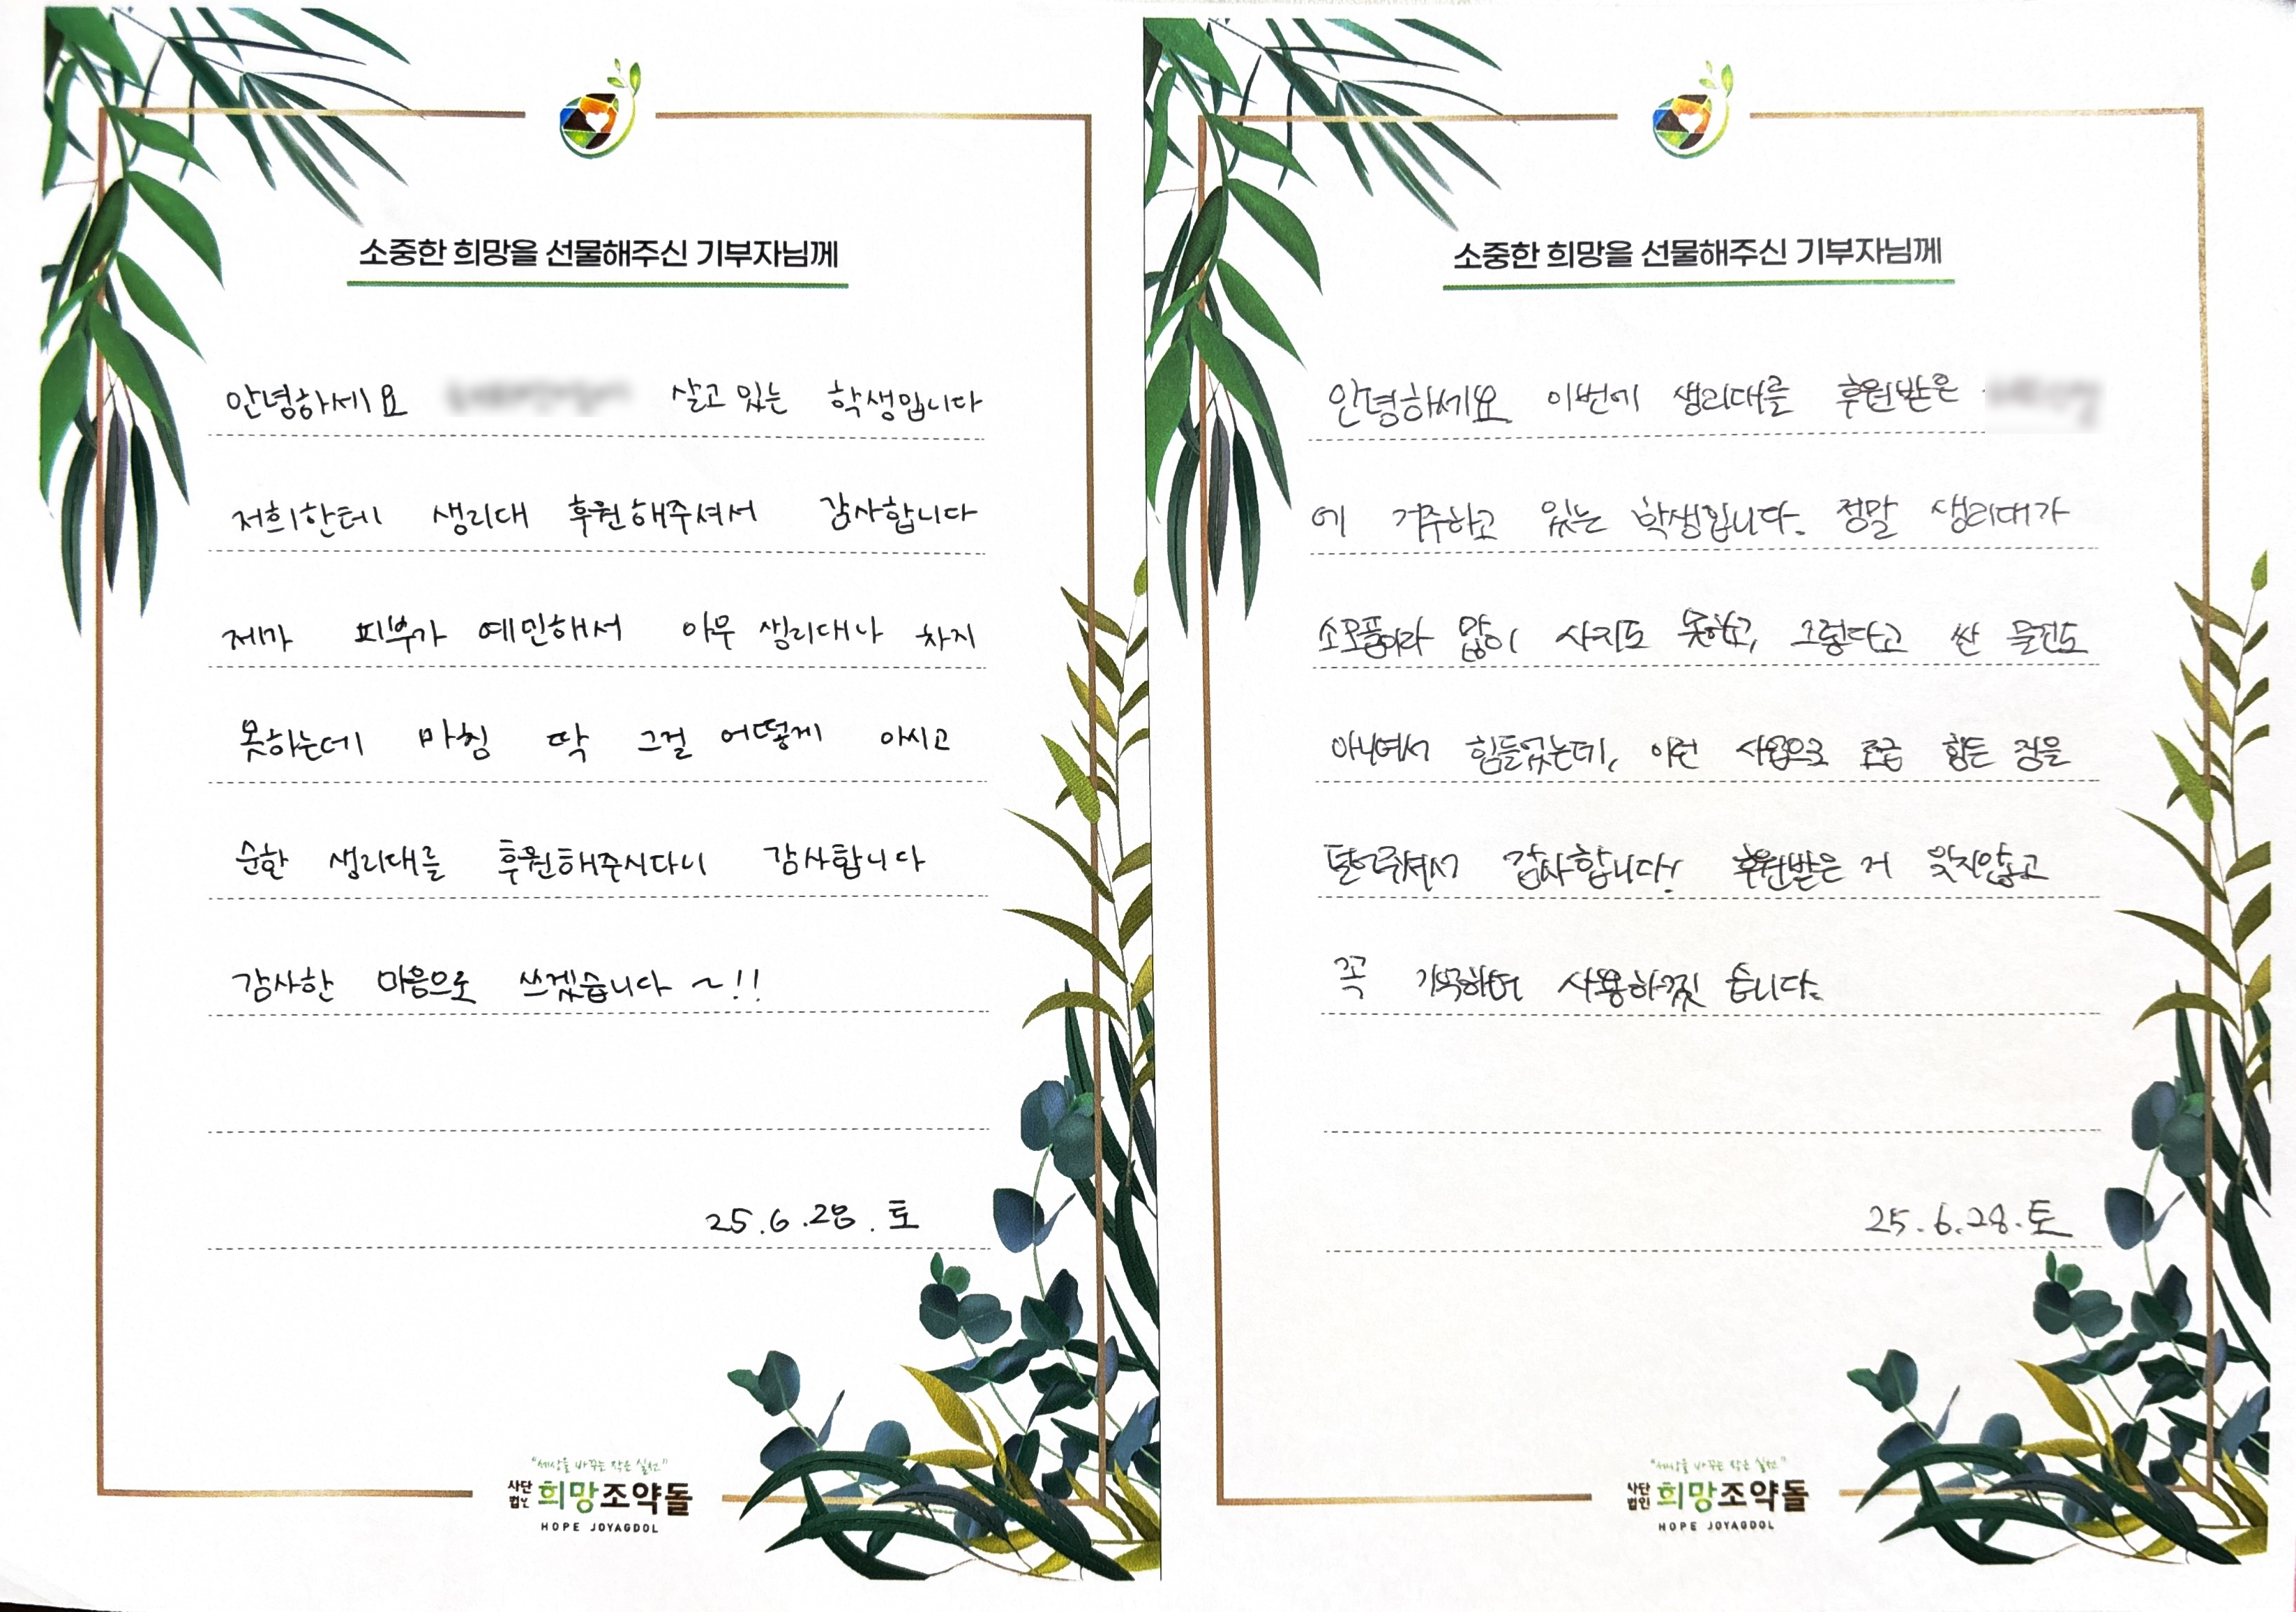 소중한 희망을 선물해주신 기부자님께
안녕하세요 살고 있는 학생입니다
저희한테 생리대 후원해주셔서 감사합니다
제가 피부가 예민해서 아무 생리대나 차지
못하는데 마침 딱 그걸 어떻게 아시고
순한 생리대를 후원해주시다니 감사합니다
감사한 마음으로 쓰겠습니다 ~!!
25.6.28.토
"세상을 바꾸는 작은 실천"
사단법인 희망조약돌
HOPE JOYAGDOL
소중한 희망을 선물해주신 기부자님께
안녕하세요 이번에 생리대를 후원받은
에 거주하고 있는 학생입니다. 정말 생리대가
소모품이라 많이 사지도 못하고, 그렇다고 싼 물건도
아니여서 힘들었는데, 이런 사용으로 조금 힘든 짐을
덜어줘서 감사합니다! 후원받은 거 잊지않고
꼭 기억하며 사용하겠습니다.
25.6.28.토
"세상을 바꾸는 작은 실천"
사단법인 희망조약돌
HOPE JOYAGDOL